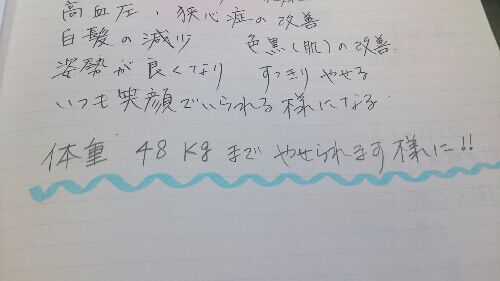 高血圧、狭心症の改善
白髪の減少 色黒(肌)の改善.
姿勢が良くなり すっきりやせる
いつも笑顔でいられる様になる
体重 48Kgまでやせられます様に!!